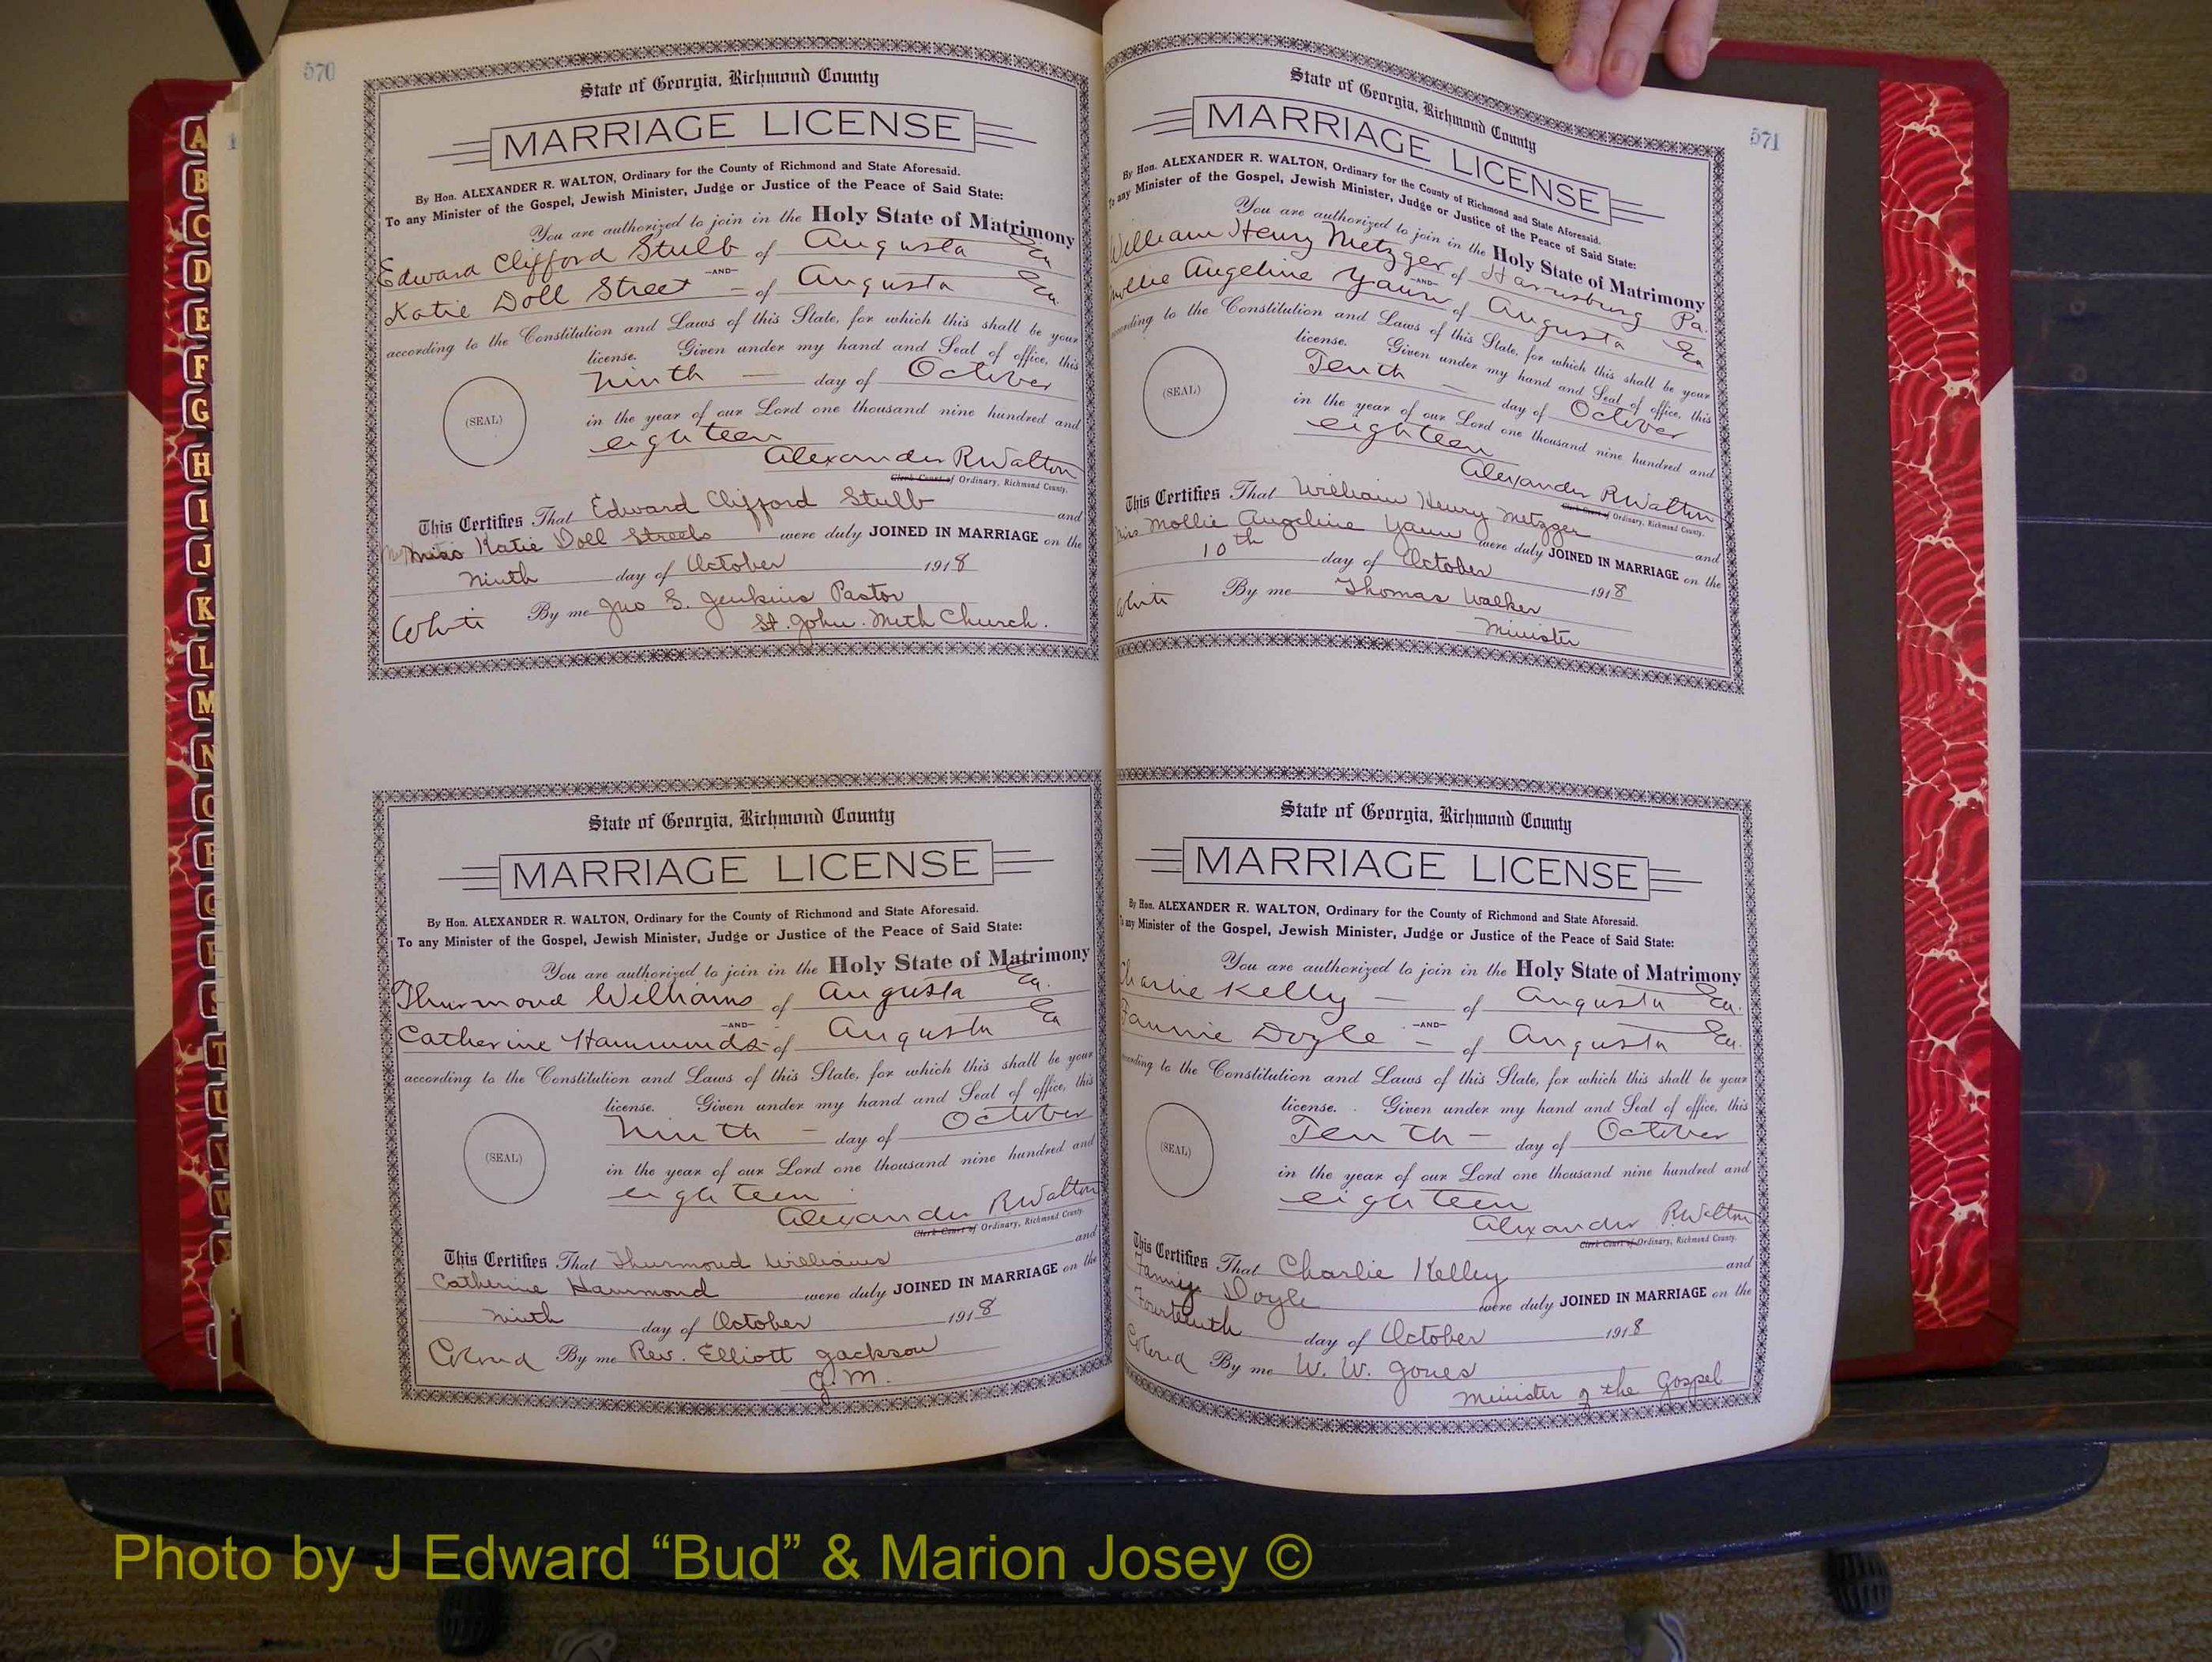 570
State of Georgia, Richmond County
MARRIAGE LICENSE
By Hon. ALEXANDER R. WALTON, Ordinary for the County of Richmond and State Aforesaid.
To any Minister of the Gospel, Jewish Minister, Judge or Justice of the Peace of Said State:
You are authorized to join in the Holy State of Matrimony
Edward Clifford Stulb of Augusta Ga
—AND—
Katie Doll Street – of Augusta Ga.
according to the Constitution and Laws of this State, for which this shall be your
license. Given under my hand and Seal of office, this
Ninth — day of October
(SEAL)
in the year of our Lord one thousand nine hundred and
eighteen
Alexander R Walton
Clerk Court of Ordinary, Richmond County.
This Certifies That Edward Clifford Stulb and
Miss Katie Doll Streets were duly JOINED IN MARRIAGE on the
Ninth day of October 1918
White By me Jno S. Jenkins Pastor
St. John. Meth Church.
State of Georgia, Richmond County
MARRIAGE LICENSE
By Hon. ALEXANDER R. WALTON, Ordinary for the County of Richmond and State Aforesaid.
To any Minister of the Gospel, Jewish Minister, Judge or Justice of the Peace of Said State:
You are authorized to join in the Holy State of Matrimony
Thurmond Williams of Augusta Ga.
—AND—
Catherine Hammonds of Augusta Ga
according to the Constitution and Laws of this State, for which this shall be your
license. Given under my hand and Seal of office, this
Ninth – day of October
(SEAL)
in the year of our Lord one thousand nine hundred and
eighteen
Alexander R Walton
Clerk Court of Ordinary, Richmond County.
This Certifies That Thurmond Williams and
Catherine Hammond were duly JOINED IN MARRIAGE on the
ninth day of October 1918
Colored By me Rev. Elliott Jackson
G. M.
571
State of Georgia, Richmond County
MARRIAGE LICENSE
By Hon. ALEXANDER R. WALTON, Ordinary for the County of Richmond and State Aforesaid.
To any Minister of the Gospel, Jewish Minister, Judge or Justice of the Peace of Said State:
You are authorized to join in the Holy State of Matrimony
William Henry Metzger of Harrisburg Pa.
—AND—
Mollie Angeline Yaun of Augusta Ga
according to the Constitution and Laws of this State, for which this shall be your
license. Given under my hand and Seal of office, this
Tenth — day of October
(SEAL)
in the year of our Lord one thousand nine hundred and
eighteen
Alexander R Walton
Clerk Court of Ordinary, Richmond County.
This Certifies That William Henry Metzger and
Miss Mollie Angeline Yaun were duly JOINED IN MARRIAGE on the
10th day of October 1918
White By me Thomas Walker
Minister
State of Georgia, Richmond County
MARRIAGE LICENSE
By Hon. ALEXANDER R. WALTON, Ordinary for the County of Richmond and State Aforesaid.
To any Minister of the Gospel, Jewish Minister, Judge or Justice of the Peace of Said State:
You are authorized to join in the Holy State of Matrimony
Charlie Kelly – of Augusta Ga.
—AND—
Fannie Doyle – of Augusta Ga.
according to the Constitution and Laws of this State, for which this shall be your
license. Given under my hand and Seal of office, this
Tenth – day of October
(SEAL)
in the year of our Lord one thousand nine hundred and
eighteen
Alexander R. Walton
Clerk Court of Ordinary, Richmond County.
This Certifies That Charlie Kelley and
Doyle were duly JOINED IN MARRIAGE on the
Fourteenth day of October 1918
Colored By me W. W. Jones
Minister of the Gospel
A
B
C
D
E
F
G
H
I
J
K
L
M
N
O
Photo by J Edward “Bud” & Marion Josey ©